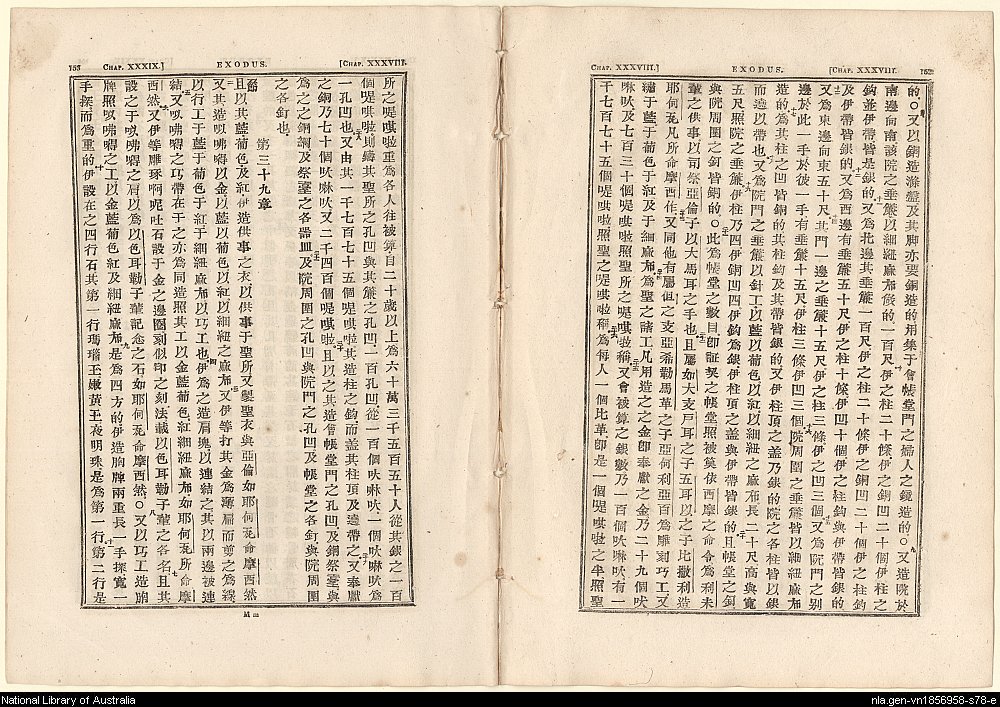 CHAP. XXXVIII.] EXODUS. [CHAP. XXXVIII. 152
的○又以銅造滌盤及其脚亦要銅造的用集于會帳堂門之婦人之鏡造的○又造院於
南邊向南該院之垂簾以細紐蔴布做的一百尺伊之柱二十條伊之銅凹二十個伊柱之
鈎並伊帶皆是銀的又為北邊其垂簾一百尺伊之柱二十條伊之銅凹二十個伊之柱鈎
及伊帶皆銀的又為西邊有垂簾五十尺伊之柱十條伊凹十個伊之柱鈎與伊帶皆銀的
又為東邊向東五十尺其門一邊之垂簾十五尺伊之柱三條伊之凹三個又為院門之別
邊於此一手於彼一手有垂簾十五尺伊柱三條伊凹三個院周圍之垂簾皆以細紐蔴布
造的為其柱之凹皆銅的其柱鈎及其帶皆銀的又伊柱頂之盖乃銀的院之各柱皆以銀
而邉以帶也又為院門之垂簾以針工以藍以葡色以紅以細紐之蔴布長二十尺高與寬
五尺照院之垂簾伊柱乃四伊銅凹四伊鈎為銀伊柱頂之盖與伊帶皆銀的且帳堂之釘
與院周圍之釘皆銅的○此為帳堂之數目即証契之帳堂照被筭依西摩之命令為利未
輩之供事以司祭亞倫子以大馬耳之手也且屬如大支戸耳之子五耳以之子比撒利造
耶何瓦凡所命摩西作又同他有屬但之支亞希勒馬革之子亞何利亞百為雕刻巧工又
繡于藍于葡色于紅及于細蔴布為聖之諸工凡用造之之金卽奉獻之金乃二十九個吠
啉吠及七百三十個㖷嘰啦照聖所之㖷嘰啦稱又會被算之銀數乃一百個吠啉吠有一
千七百七十五個㖷嘰啦照聖之㖷嘰啦稱為每人一個比革卽是一個㖷嘰啦之半照聖
153 CHAP. XXXIX.] EXODUS. [CHAP. XXXVIII.
所之㖷嘰啦重為各人往被算自二十歲以上為六十萬三千五百五十人從其銀之一百
個㖷嘰啦則鑄其聖所之孔凹與其簾之孔凹一百孔凹從一百個吠啉吠一個吠啉吠為
一孔凹也又由其一千七百七十五個㖷嘰啦其造柱之鈎而盖其柱頂及邉帶之又奉獻
之銅乃七十個吠啉吠又二千四百個㖷嘰啦且以之其造會帳堂門之孔凹及銅祭臺與
為之之銅網及祭臺之各器皿及院周圍之孔凹與院門之孔凹及帳堂之各釘與院周圍
之各釘也
第三十九章
且以其藍葡色及紅伊造供事之衣以供事于聖所又製聖衣與亞倫如耶何瓦命摩西然
又其造㕽咈嘚以金以藍以葡色以紅以細紐之蔴布又伊等打其金為薄扁而剪之為綫
以行工于藍于葡色于紅于細紐蔴布以巧工也伊為之造肩塊以連結之其以兩邊被連
結又㕽咈嘚之巧帶在于之亦為同造照其工以金藍葡色紅細紐蔴布如耶何瓦所命摩
西然又伊等雕琢啊呢吐石設于金之邉圈刻似印之刻法載以色耳勒子輩之各名且其
設之于㕽咈嘚之肩以為以色耳勒子輩記念之石如耶何瓦命摩西然○又以巧工造胸
牌照㕽咈嘚之工以金藍葡色紅及細紐蔴布是為四方的伊造胸牌兩重長一手搩寬一
手搩而為重的伊設在之四行石其第一行瑪瑙玉嫩黃玉夜明珠是為第一行第二行是
M m
National Library of Australia
nla.gen-vn1856958-s78-e